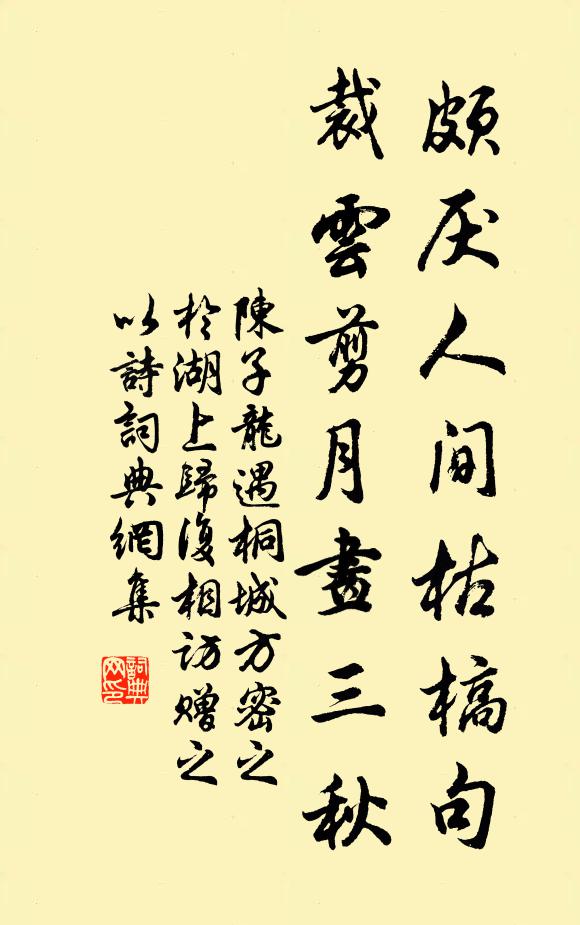 頗厌人间枯槁句
裁雲剪月畫三秋
陳子龍遇桐城方密之
於湖上歸復相訪赠之
以詩詞典網集
詞典
网印